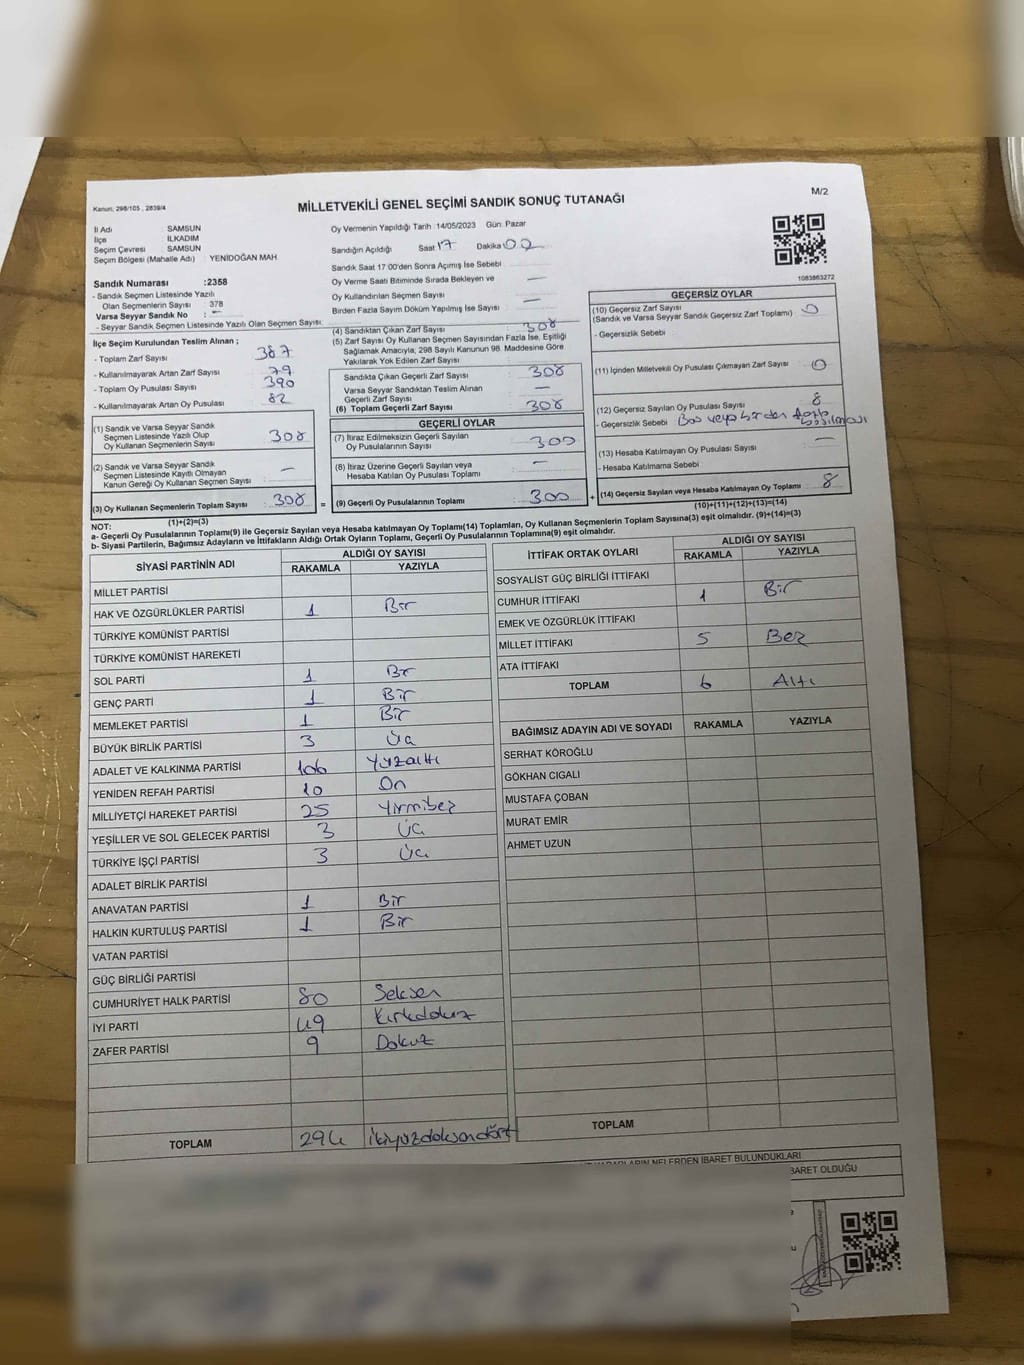 Kanun, 298/105 , 2839/4
MİLLETVEKİLİ GENEL SEÇİMİ SANDIK SONUÇ TUTANAĞI
M/2
İl Adı : SAMSUN
İlçe : İLKADIM
Seçim Çevresi : SAMSUN
Seçim Bölgesi (Mahalle Adı) : YENİDOĞAN MAH
Oy Vermenin Yapıldığı Tarih :14/05/2023 Gün: Pazar
Sandığın Açıldığı Saat 17 Dakika 02
Sandık Saat 17 00'den Sonra Açımış İse Sebebi
Oy Verme Saati Bitiminde Sırada Bekleyen ve
Oy Kullandırılan Seçmen Sayısı —
Birden Fazla Sayım Döküm Yapılmış İse Sayısı —
1083863272
Sandık Numarası :2358
- Sandık Seçmen Listesinde Yazılı
Olan Seçmenlerin Sayısı : 378
Varsa Seyyar Sandık No : —
- Seyyar Sandık Seçmen Listesinde Yazılı Olan Seçmen Sayısı:
İlçe Seçim Kurulundan Teslim Alınan ;
- Toplam Zarf Sayısı : 387
- Kullanılmayarak Artan Zarf Sayısı : 79
- Toplam Oy Pusulası Sayısı : 390
- Kullanılmayarak Artan Oy Pusulası : 82
(4) Sandıktan Çıkan Zarf Sayısı : 308
(5) Zarf Sayısı Oy Kullanan Seçmen Sayısından Fazla İse, Eşitliği
Sağlamak Amacıyla, 298 Sayılı Kanunun 98. Maddesine Göre
Yakılarak Yok Edilen Zarf Sayısı
Sandıkta Çıkan Geçerli Zarf Sayısı : 308
Varsa Seyyar Sandıktan Teslim Alınan
Geçerli Zarf Sayısı : —
(6) Toplam Geçerli Zarf Sayısı : 308
GEÇERLİ OYLAR
(7) İtiraz Edilmeksizin Geçerli Sayılan
Oy Pusulalarının Sayısı : 300
(8) İtiraz Üzerine Geçerli Sayılan veya
Hesaba Katılan Oy Pusulası Toplamı : —
(9) Geçerli Oy Pusulalarının Toplamı : 300
GEÇERSİZ OYLAR
(10) Geçersiz Zarf Sayısı
(Sandık ve Varsa Seyyar Sandık Geçersiz Zarf Toplamı) : 0
- Geçersizlik Sebebi :
(11) İçinden Milletvekili Oy Pusulası Çıkmayan Zarf Sayısı : 0
(12) Geçersiz Sayılan Oy Pusulası Sayısı : 8
- Geçersizlik Sebebi : Boş veya birden fazla
(13) Hesaba Katılmayan Oy Pusulası Sayısı : —
- Hesaba Katılmama Sebebi :
(14) Geçersiz Sayılan veya Hesaba Katılmayan Oy Toplamı : 8
(10)+(11)+(12)+(13)=(14)
(1) Sandık ve Varsa Seyyar Sandık
Seçmen Listesinde Yazılı Olup
Oy Kullanan Seçmenlerin Sayısı : 308
(2) Sandık ve Varsa Seyyar Sandık
Seçmen Listesinde Kayıtlı Olmayan
Kanun Gereği Oy Kullanan Seçmen Sayısı : —
(3) Oy Kullanan Seçmenlerin Toplam Sayısı : 308
(1)+(2)=(3)
=
+
NOT:
a- Geçerli Oy Pusulalarının Toplamı(9) ile Geçersiz Sayılan veya Hesaba Katılmayan Oy Toplamı(14) Toplamları, Oy Kullanan Seçmenlerin Toplam Sayısına(3) eşit olmalıdır. (9)+(14)=(3)
b- Siyasi Partilerin, Bağımsız Adayların ve İttifakların Aldığı Ortak Oyların Toplamı, Geçerli Oy Pusulalarının Toplamına(9) eşit olmalıdır.
SİYASİ PARTİNİN ADI
ALDIĞI OY SAYISI
RAKAMLA YAZIYLA
MİLLET PARTİSİ
HAK VE ÖZGÜRLÜKLER PARTİSİ 1 Bir
TÜRKİYE KOMÜNİST PARTİSİ
TÜRKİYE KOMÜNİST HAREKETİ
SOL PARTİ 1 Bir
GENÇ PARTİ 1 Bir
MEMLEKET PARTİSİ 1 Bir
BÜYÜK BİRLİK PARTİSİ 3 Üç
ADALET VE KALKINMA PARTİSİ 106 Yüzaltı
YENİDEN REFAH PARTİSİ 10 On
MİLLİYETÇİ HAREKET PARTİSİ 25 Yirmibeş
YEŞİLLER VE SOL GELECEK PARTİSİ 3 Üç
TÜRKİYE İŞÇİ PARTİSİ 3 Üç
ADALET BİRLİK PARTİSİ
ANAVATAN PARTİSİ 1 Bir
HALKIN KURTULUŞ PARTİSİ 1 Bir
VATAN PARTİSİ
GÜÇ BİRLİĞİ PARTİSİ
CUMHURİYET HALK PARTİSİ 80 Seksen
İYİ PARTİ 49 Kırkdokuz
ZAFER PARTİSİ 9 Dokuz
TOPLAM 294 İkiyüzdoksandört
İTTİFAK ORTAK OYLARI
ALDIĞI OY SAYISI
RAKAMLA YAZIYLA
SOSYALİST GÜÇ BİRLİĞİ İTTİFAKI
CUMHUR İTTİFAKI 1 Bir
EMEK VE ÖZGÜRLÜK İTTİFAKI
MİLLET İTTİFAKI 5 Beş
ATA İTTİFAKI
TOPLAM 6 Altı
BAĞIMSIZ ADAYIN ADI VE SOYADI RAKAMLA YAZIYLA
SERHAT KÖROĞLU
GÖKHAN CIGALI
MUSTAFA ÇOBAN
MURAT EMİR
AHMET UZUN
TOPLAM
NELERDEN İBARET BULUNDUKLARI
İBARET OLDUĞU